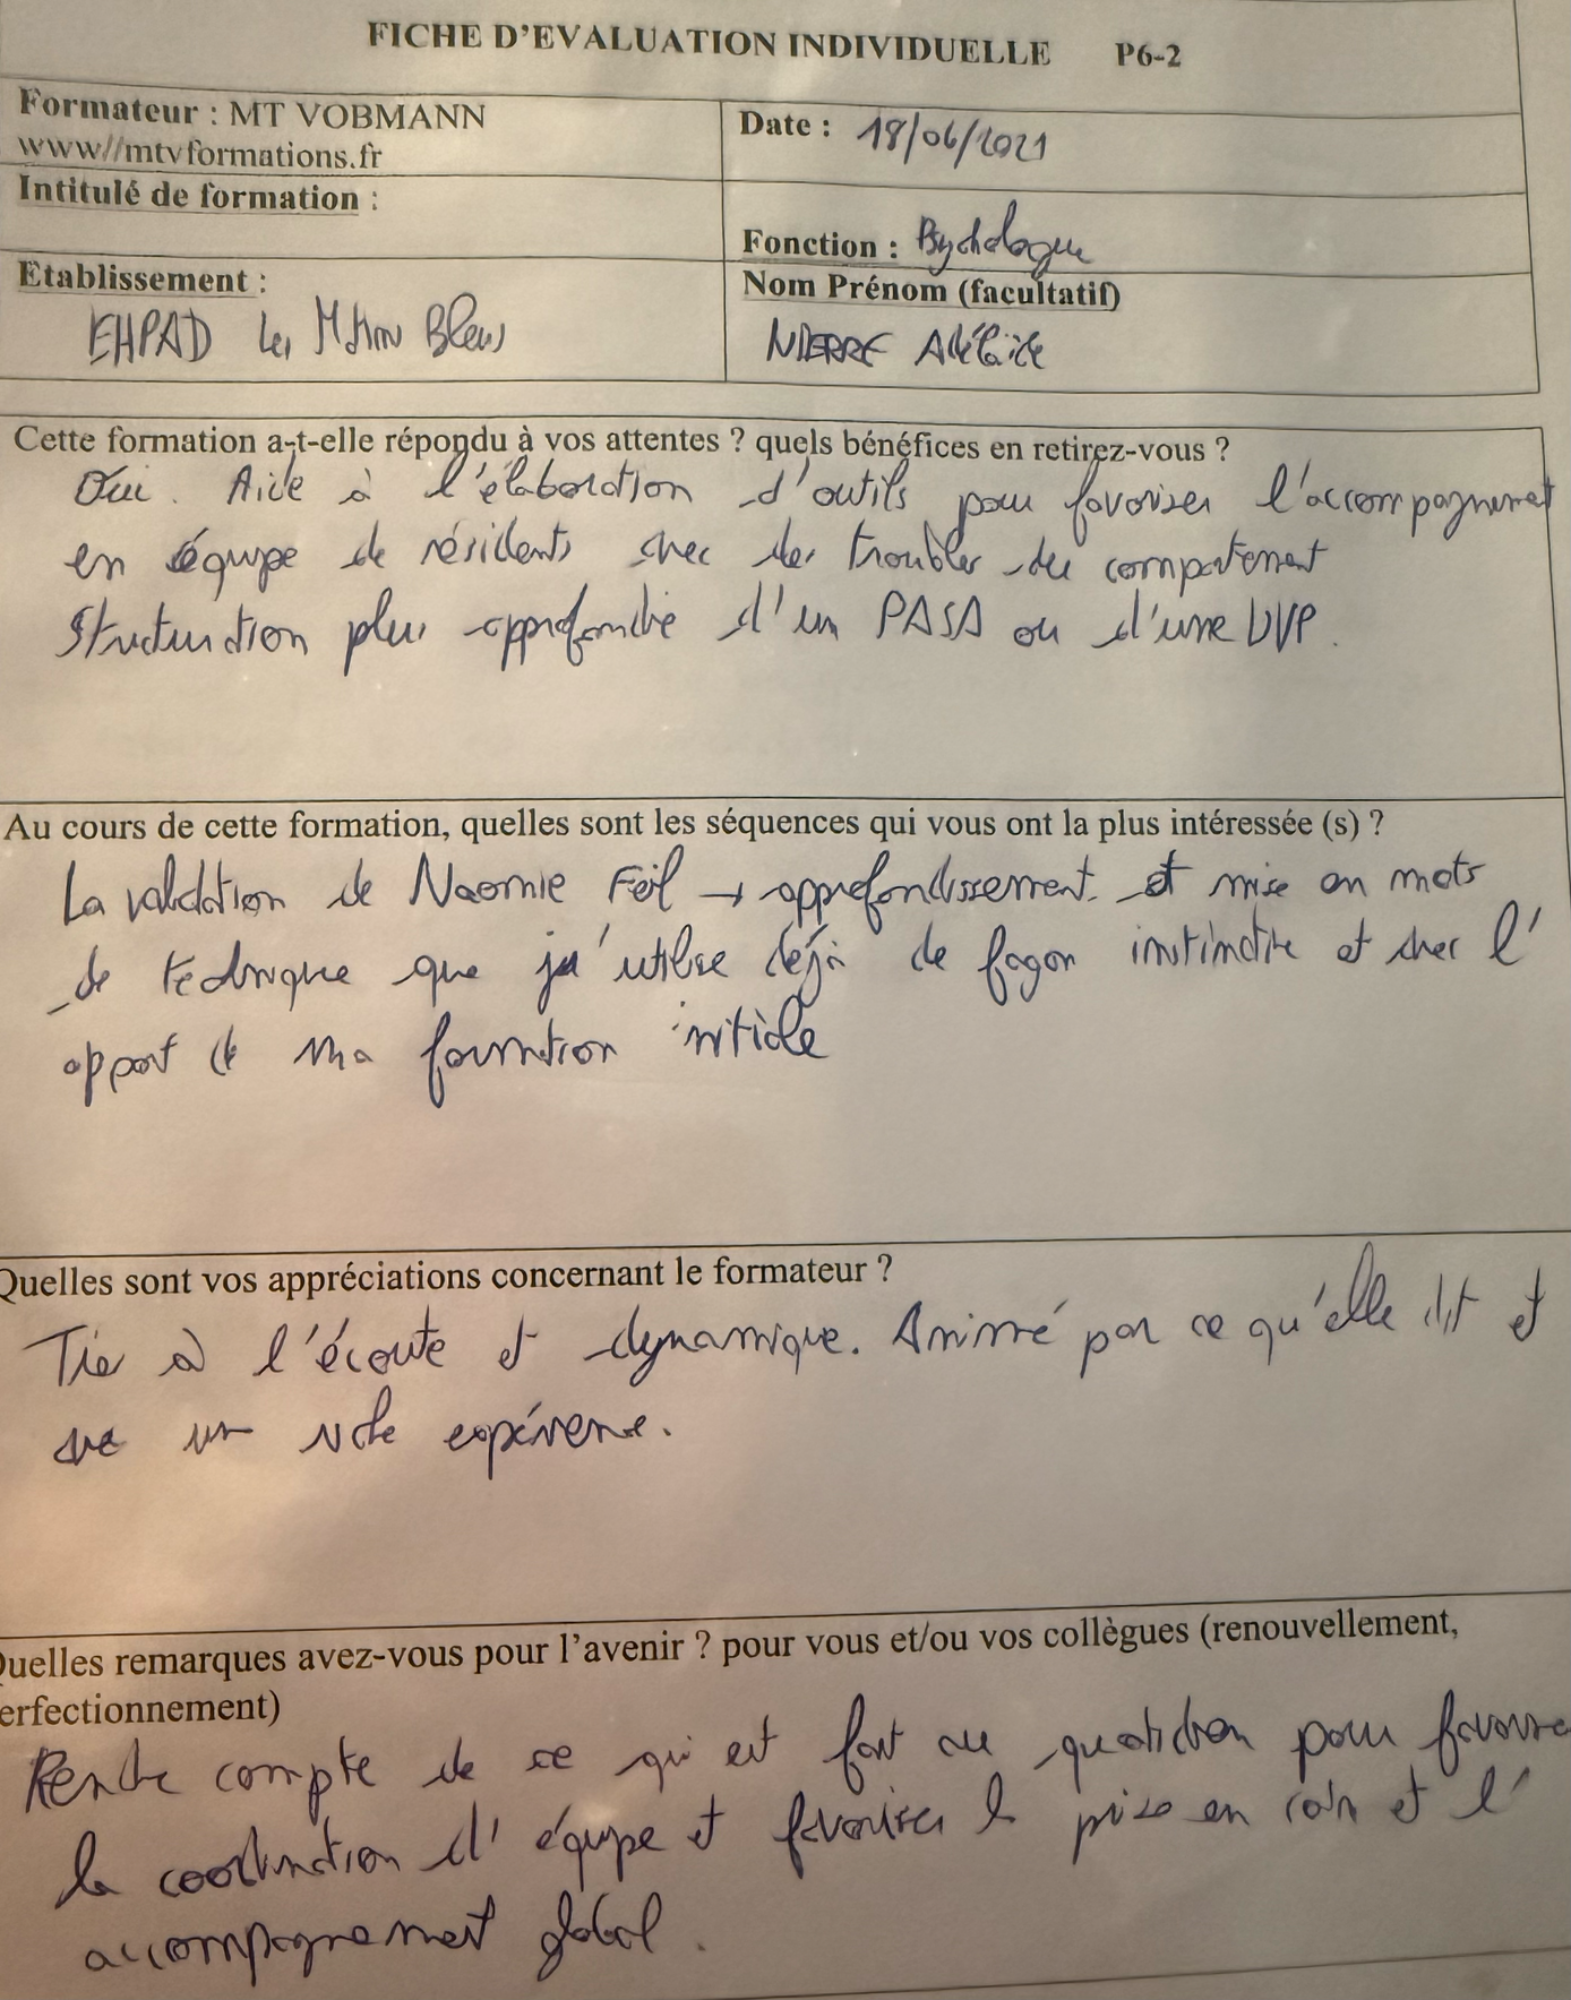 FICHE D'EVALUATION INDIVIDUELLE P6-2
Formateur : MT VOBMANN
www//mtvformations.fr
Date : 18/06/2021
Intitulé de formation :
Fonction : Psychologue
Etablissement :
EHPAD Les Matins Bleus
Nom Prénom (facultatif)
Adélaïde
Cette formation a-t-elle répondu à vos attentes ? quels bénéfices en retirez-vous ?
Oui. Aide à l'élaboration d'outils pour favoriser l'accompagnement
en équipe de résidents avec des troubles du comportement
Structuration plus approfondie d'un PASA ou d'une UVP.
Au cours de cette formation, quelles sont les séquences qui vous ont la plus intéressée (s) ?
La validation de Naomie Feil → approfondissement et mise en mots
de technique que j'utilise déjà de façon instinctive et avec l'
apport de ma formation initiale
Quelles sont vos appréciations concernant le formateur ?
Très à l'écoute et dynamique. Animé par ce qu'elle dit et
expérience.
Quelles remarques avez-vous pour l'avenir ? pour vous et/ou vos collègues (renouvellement,
erfectionnement)
Rendre compte de ce qui est fait au quotidien pour favoriser
la coordination d'équipe et favoriser la prise en soin et l'
accompagnement global.